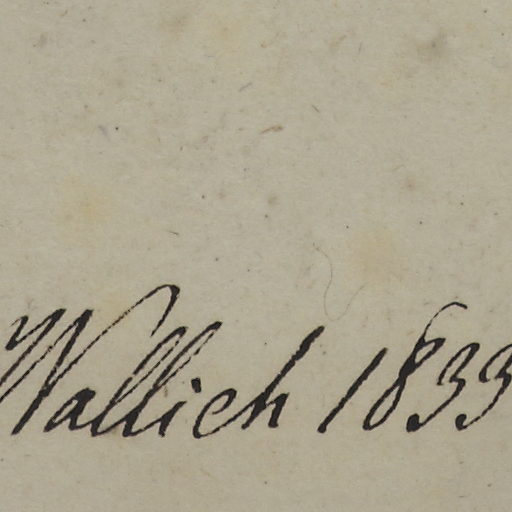 Wallich 1833